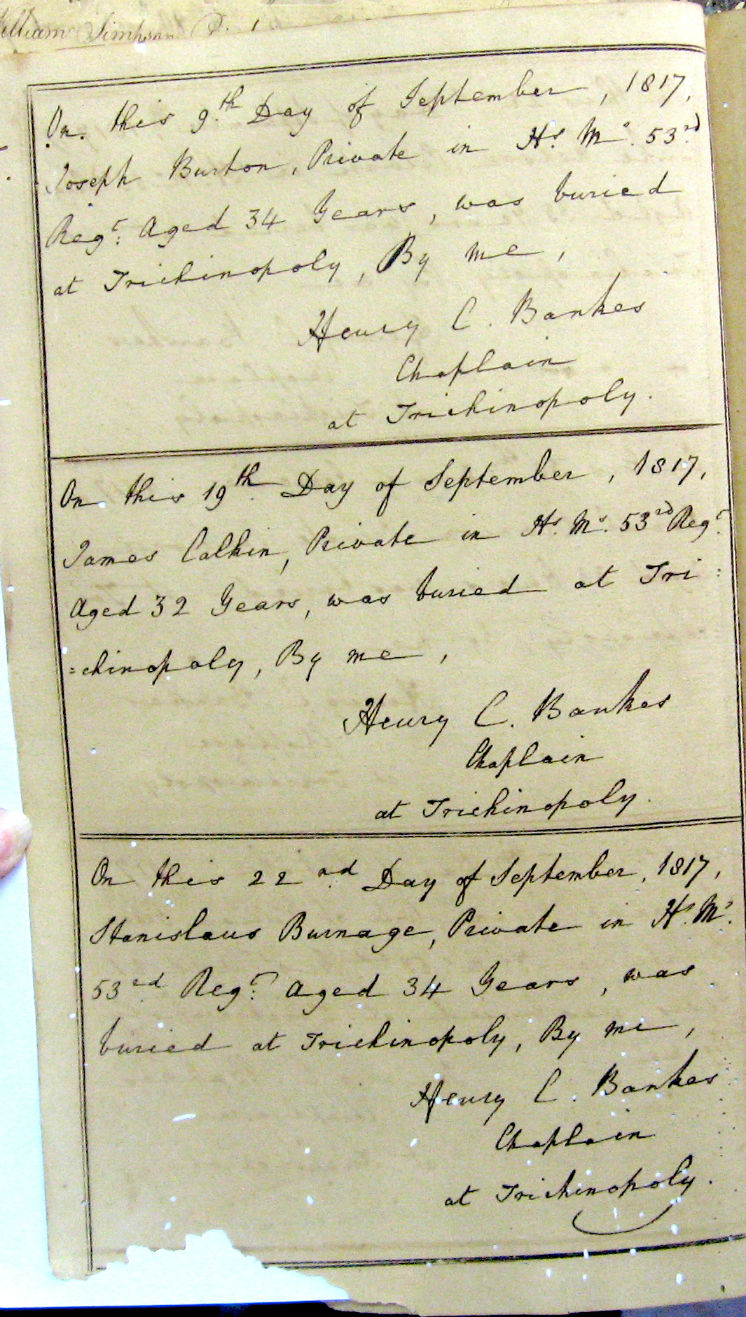 William Simpson
On this 9th Day of September, 1817,
Joseph Burton, Private in Hs. Ms. 53rd
Regt. Aged 34 Years, was buried
at Trichinopoly, By me,
Henry C. Bankes
Chaplain
at Trichinopoly.
On this 19th Day of September, 1817,
James Calkin, Private in Hs. Ms. 53rd Regt.
Aged 32 Years, was buried at Tri:
=chinopoly, By me,
Henry C. Bankes
Chaplain
at Trichinopoly.
On this 22nd Day of September, 1817,
Stanislaus Burnage, Private in Hs. Ms.
53rd Regt. Aged 34 Years, was
buried at Trichinopoly, By me,
Henry C. Bankes
Chaplain
at Trichinopoly.